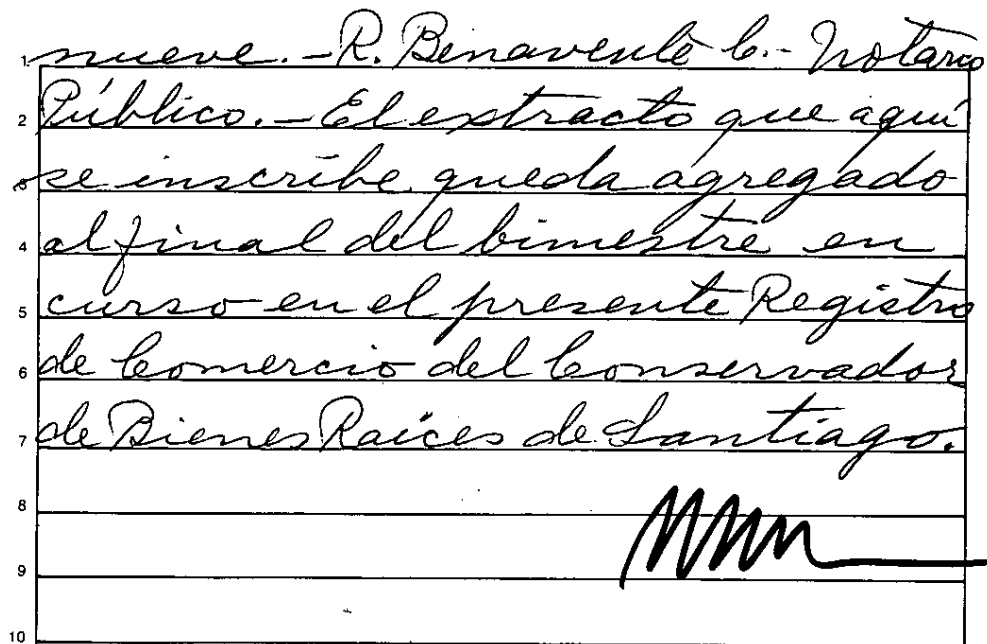 1 nueve.- R. Benavente C.- Notario
2 Público.- El extracto que aquí
3 se inscribe queda agregado
4 al final del bimestre en
5 curso en el presente Registro
6 de Comercio del Conservador
7 de Bienes Raíces de Santiago.
8
9
10